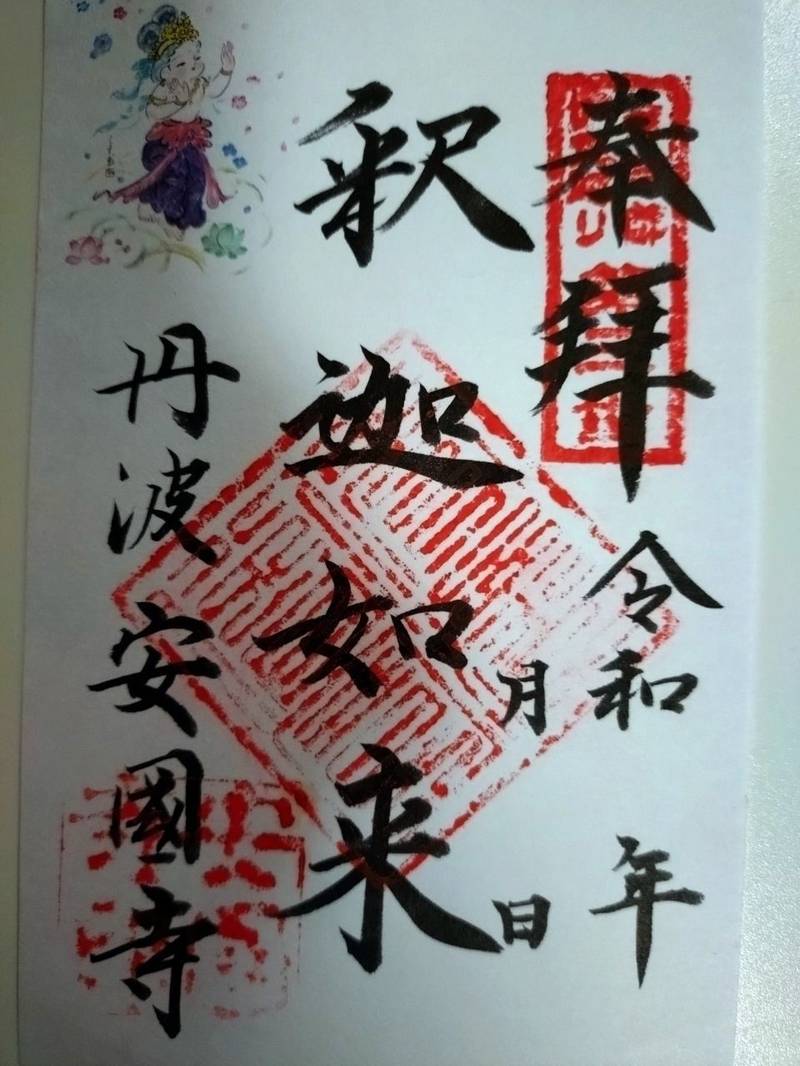 奉拜
令和 年
月 日
釈迦如来
丹波安國寺